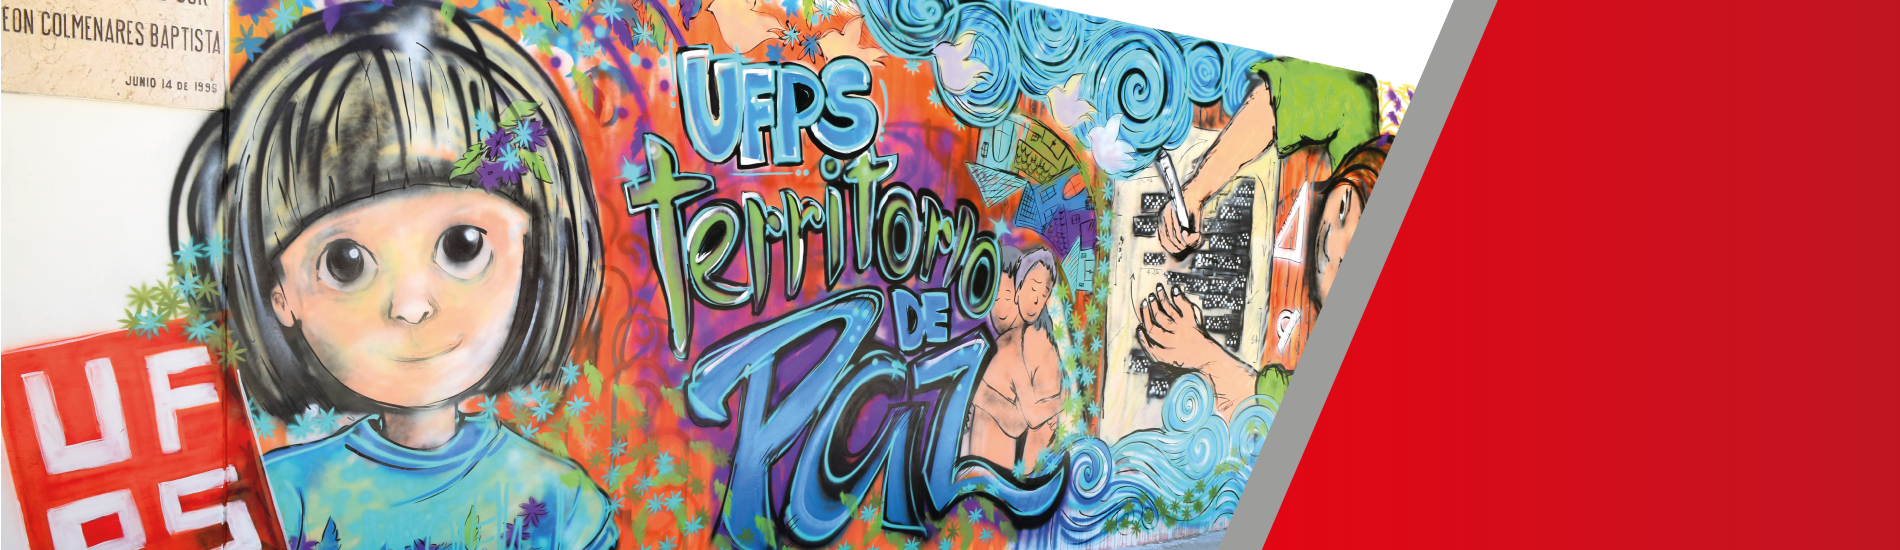 EON COLMENARES BAPTISTA
JUNIO 14 DE 1995
UFPS
territorio
DE
Paz
UF
PS